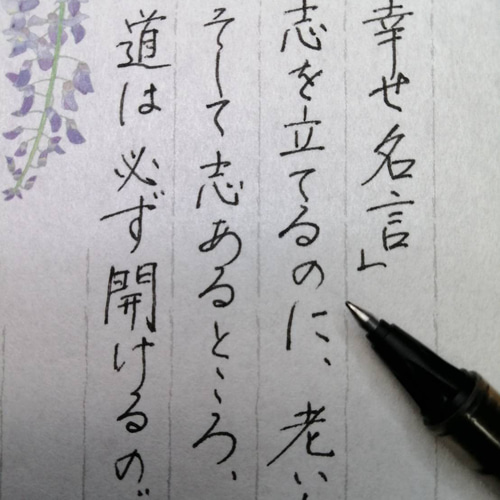 幸せ名言」
志を立てるのに、老い
そして志あるところ、
道は必ず開けるの